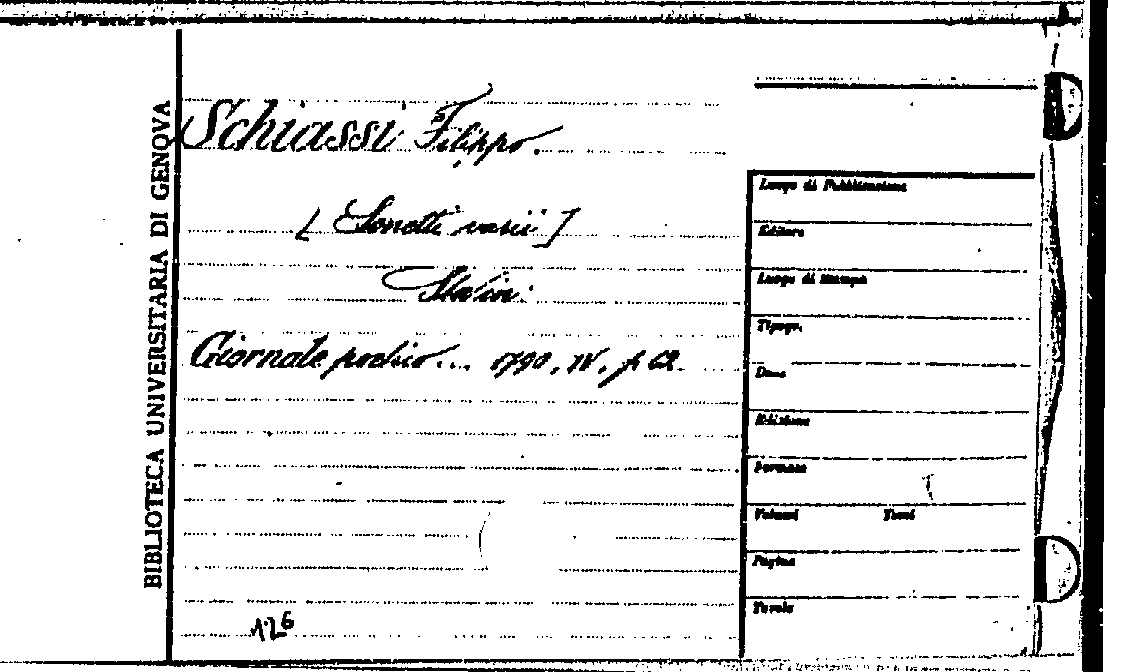 BIBLIOTECA UNIVERSITARIA DI GENOVA
Schiassi Filippo.
[ Sonetti varii ]
Giornale ... 1790, IV, p. 62.
126
Luogo di Pubblicazione
Editore
Luogo di Stampa
Tipogr.
Data
Edizione
Formato
Volumi Tomi
Pagine
Tavole